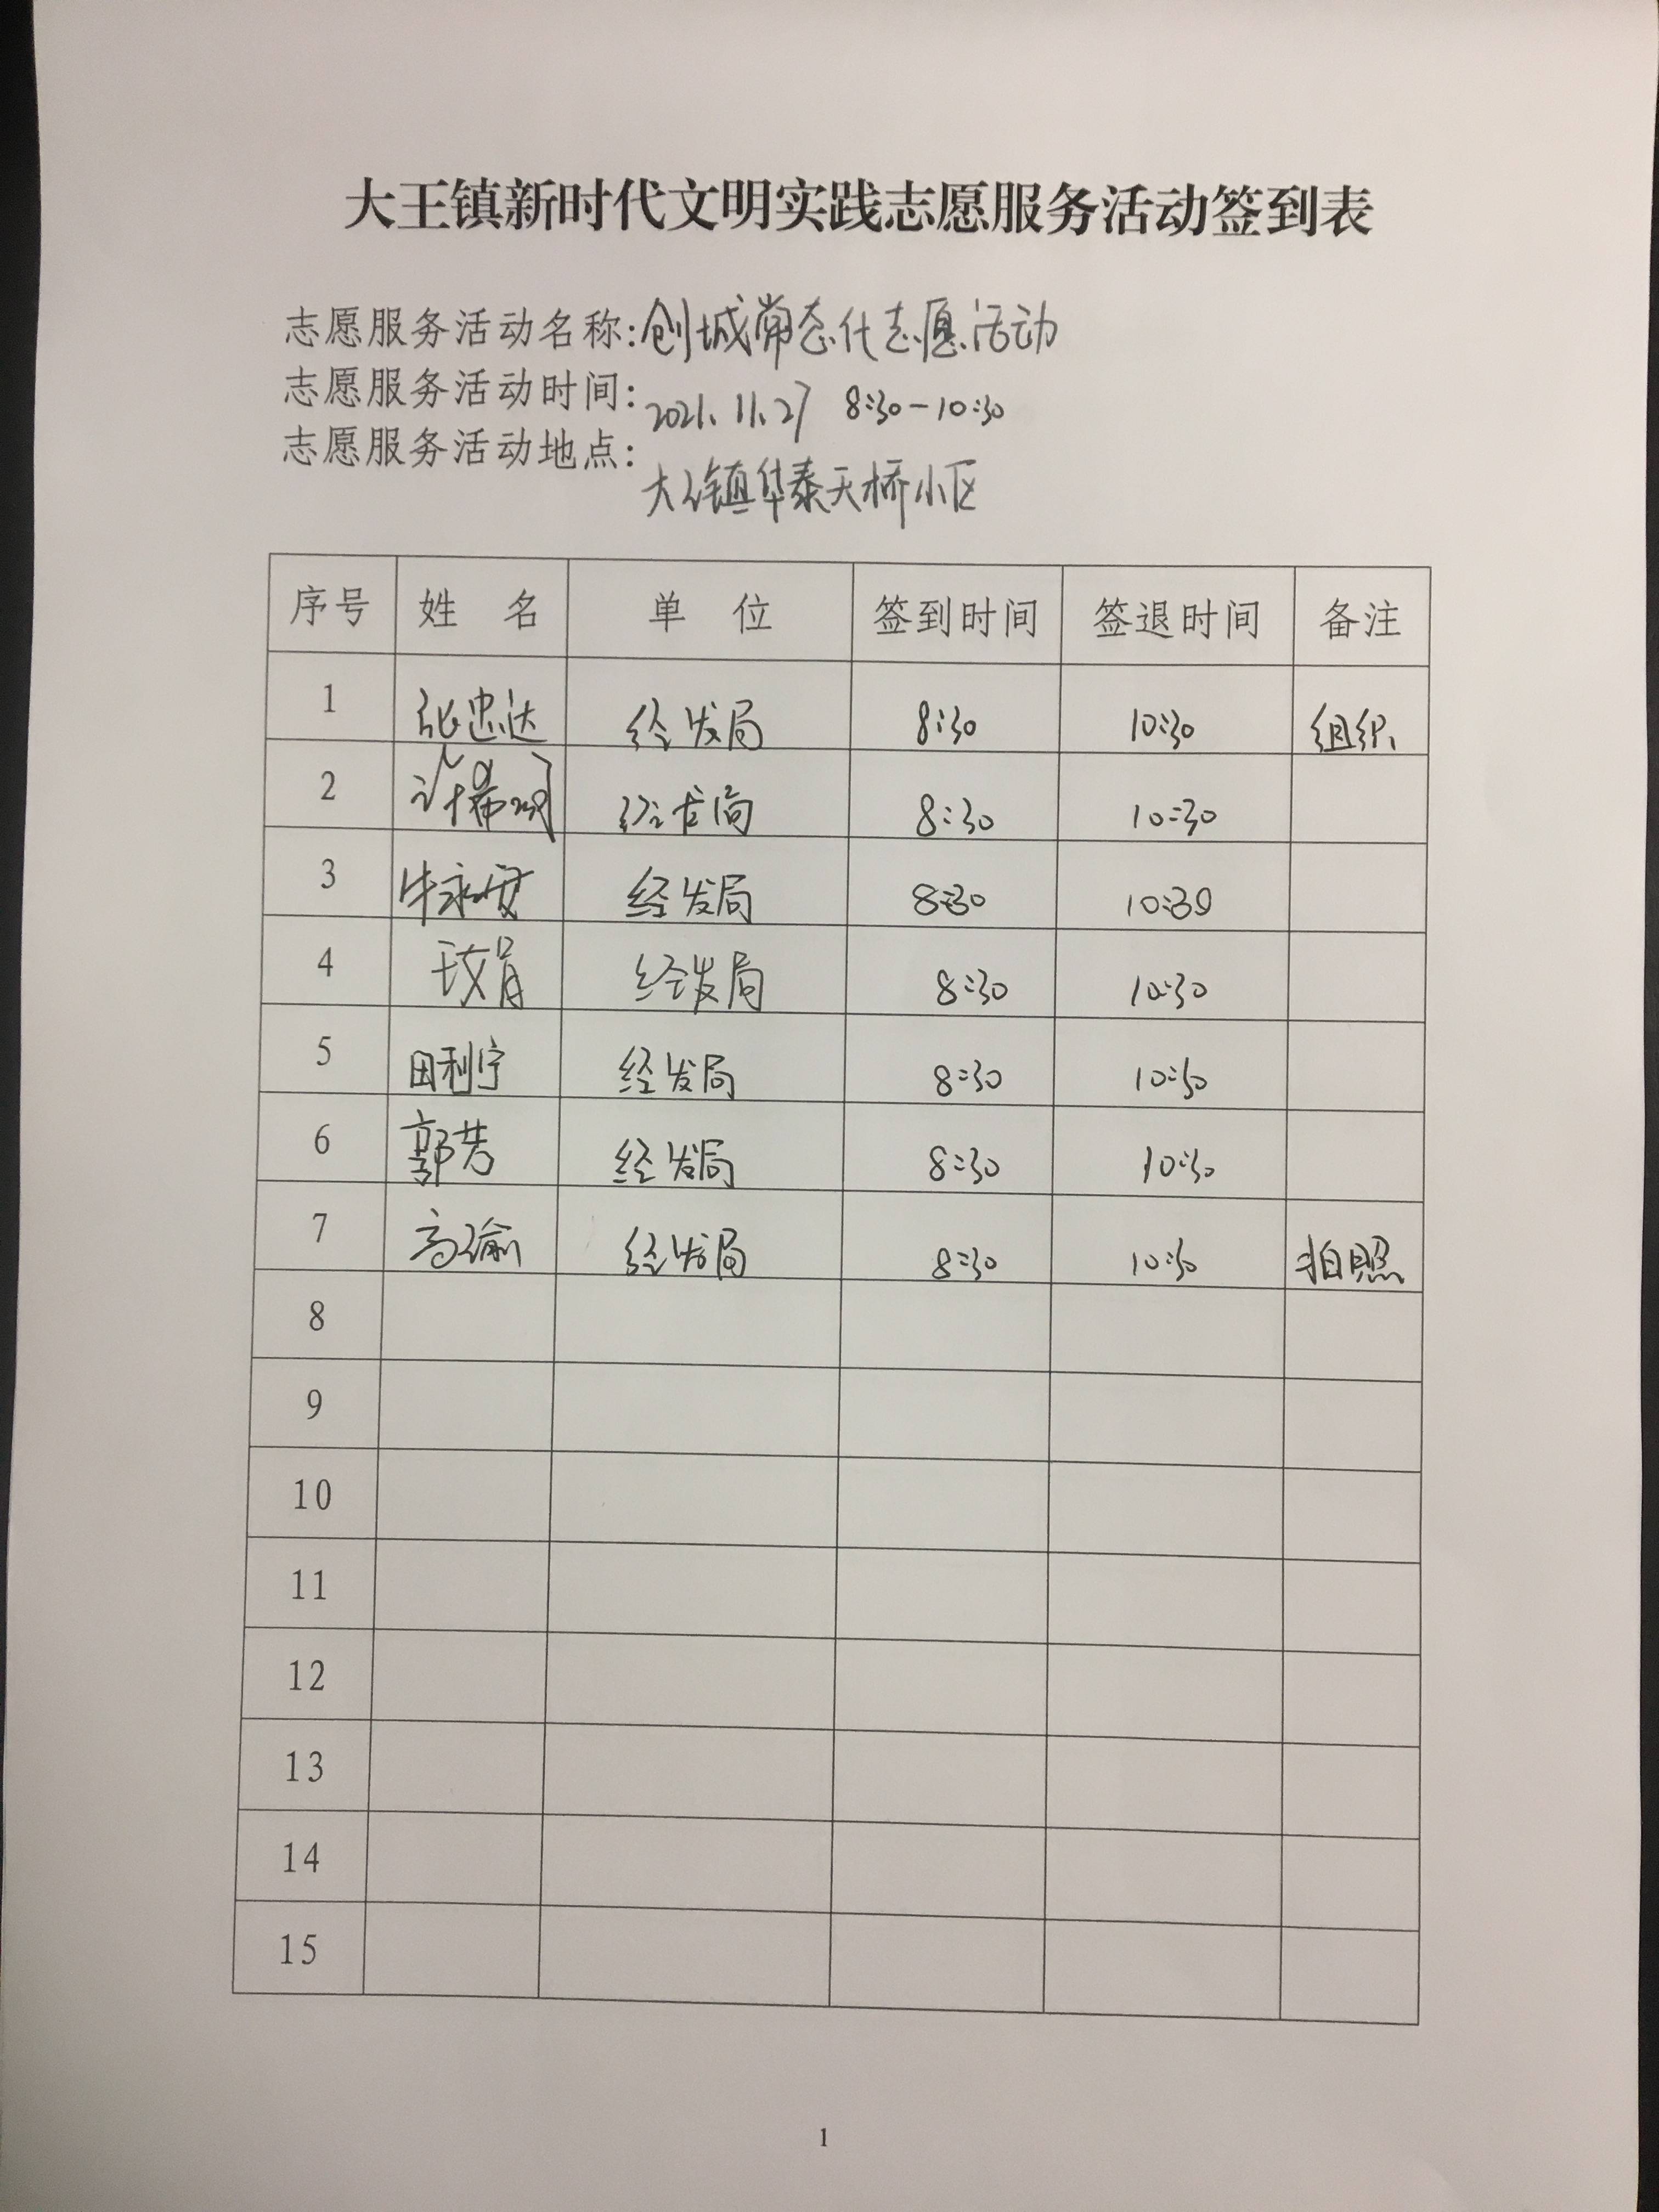 大王镇新时代文明实践志愿服务活动签到表
志愿服务活动名称:创城常态化志愿活动
志愿服务活动时间:2021.11.27 8:30-10:30
志愿服务活动地点:大王镇华泰天桥小区
序号 姓名 单位 签到时间 签退时间 备注
1 张忠达 经发局 8:30 10:30 组织
2 许希 经发局 8:30 10:30
3 牛永安 经发局 8:30 10:30
4 王文娟 经发局 8:30 10:30
5 田利宁 经发局 8:30 10:30
6 郭芳 经发局 8:30 10:30
7 高瑜 经发局 8:30 10:30 拍照
8
9
10
11
12
13
14
15
1